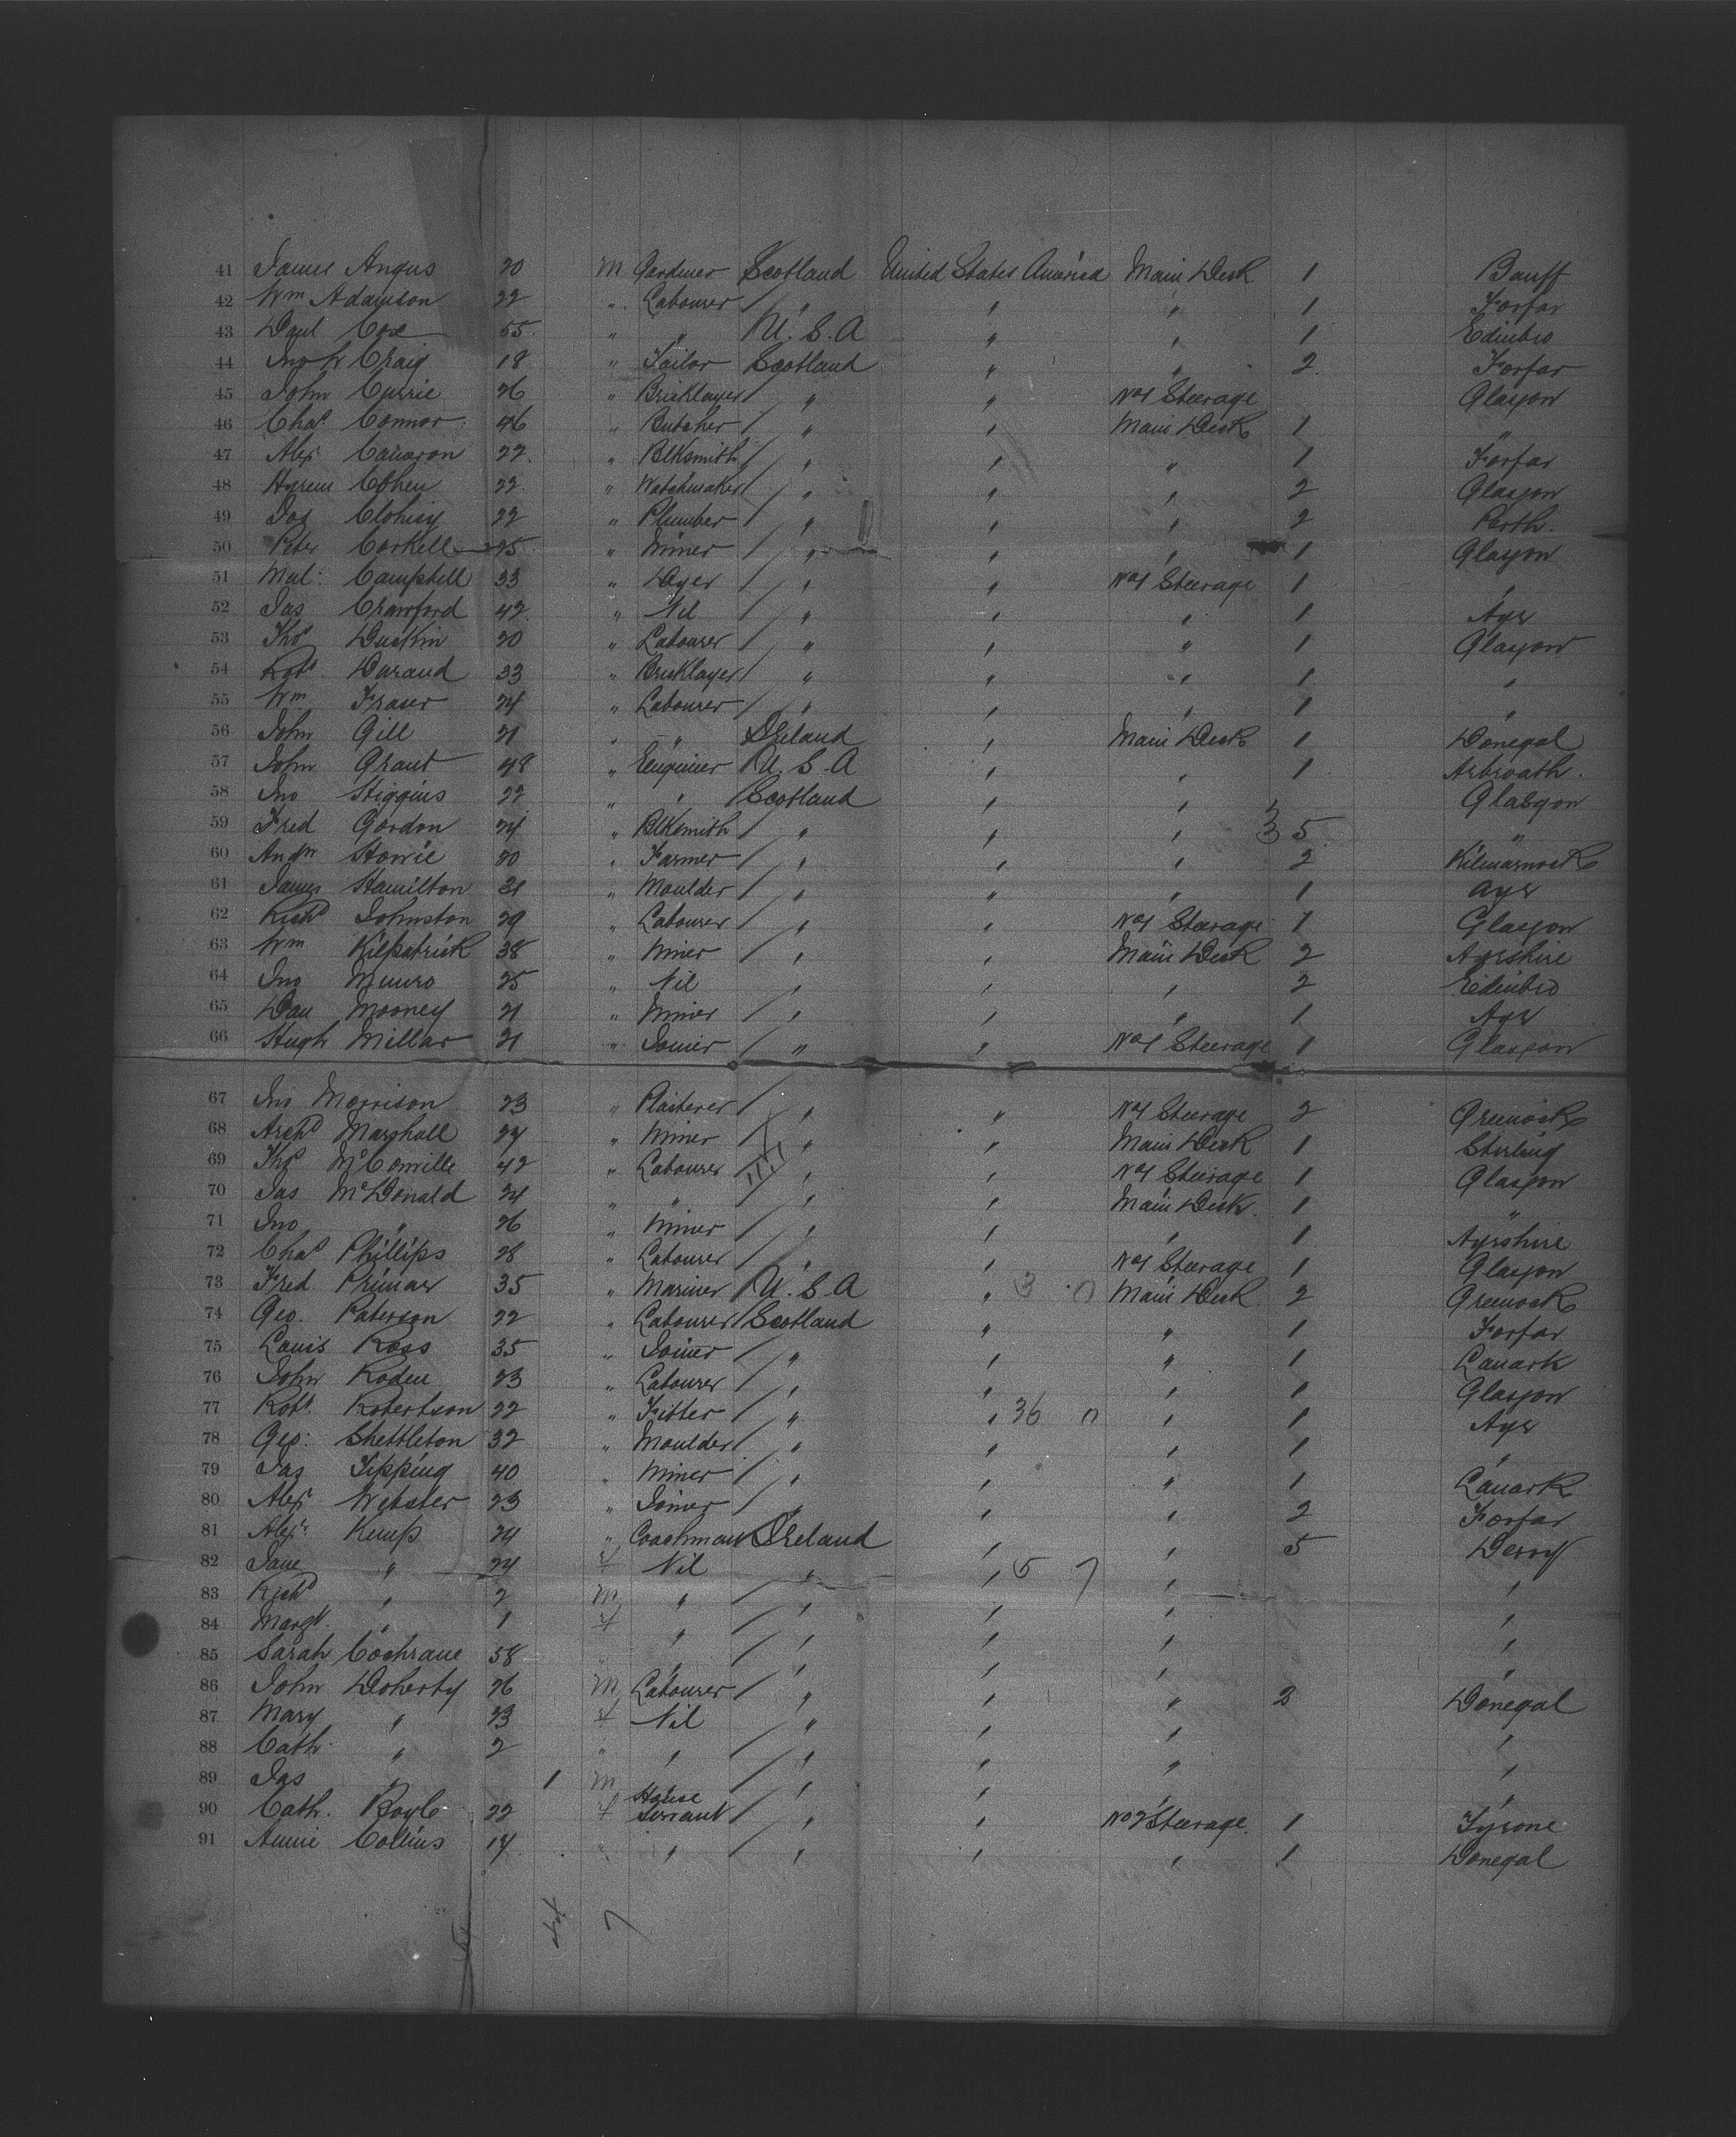 41 James Angus 20 M Gardener Scotland United States America Main Deck 1 Banff
42 Wm Adamson 22 " Labourer / " " " 1 Forfar
43 Paul Cox 55 " " U.S.A " " 1 Edinbro
44 Jno W Craig 18 " Tailor Scotland " " 2 Forfar
45 John Currie 26 " Bricklayer / " " No1 Steerage Glasgow
46 Chas Connor 46 " Butcher / " " Main Deck 1 "
47 Alex Cameron 22 " Blksmith / " " " 1 Forfar
48 Hyrem Cohen 22 " Watchmaker / " " " 2 Glasgow
49 Jos Clohisy 22 " Plumber / " " " 2 Perth
50 Peter Corkell 25 " Miner / " " " 1 Glasgow
51 Mal: Campbell 33 " Dyer / " " No1 Steerage 1 "
52 Jas Crawford 42 " Nil / " " " 1 Ayr
53 Thos Duskin 20 " Labourer / " " " 1 Glasgow
54 Robt Durand 33 " Bricklayer / " " " 1 "
55 Wm Fraser 24 " Labourer / " " " 1 "
56 John Gill 21 " " Ireland " Main Deck 1 Donegal
57 John Grant 48 " Engineer U.S.A " " 1 Arbroath
58 Jno Higgins 22 " " Scotland " " Glasgow
59 Fred Gordon 24 " Blksmith / " " " 3 5 "
60 Andw Howie 20 " Farmer / " " " 2 Kilmarnock
61 James Hamilton 31 " Moulder / " " " 1 Ayr
62 Richd Johnston 29 " Labourer / " " No1 Steerage 1 Glasgow
63 Wm Kilpatrick 38 " Miner / " " Main Deck 2 Ayrshire
64 Jno Munro 25 " Nil " " " 2 Edinbro
65 Dan Mooney 21 " Miner / " " " 1 Ayr
66 Hugh Millar 21 " Joiner / " " No1 Steerage 1 Glasgow
67 Jno Morrison 23 " Plasterer / " " No1 Steerage 2 Greenock
68 Archd Marshall 24 " Miner / " " Main Deck 1 Stirling
69 Thos McConville 42 " Labourer " " No1 Steerage 1 Glasgow
70 Jas McDonald 24 " " / " " Main Deck 1 "
71 Jno " 26 " Miner / " " " 1 Ayrshire
72 Chas Phillips 28 " Labourer / " " No1 Steerage 1 Glasgow
73 Fred Primaer 35 " Mariner U.S.A " 3 0 Main Deck 2 Greenock
74 Geo. Paterson 22 " Labourer Scotland " " 1 Forfar
75 Louis Ross 35 " Joiner / " " " 1 Lanark
76 John Roden 23 " Labourer / " " " 1 Glasgow
77 Robt. Robertson 22 " Fitter / " " 36 0 " 1 Ayr
78 Geo: Shettleton 32 " Moulder / " " " 1 "
79 Jas Tipping 40 " Miner / " " " 1 Lanark
80 Alex Webster 23 " Joiner / " " " 2 Forfar
81 Alexr Kemp 24 " Coachman Ireland " " 5 Derry
82 Jane " 24 F Nil " " 5 7 " "
83 Richd " 2 M " / " " " "
84 Margt " 1 F " / " " " "
85 Sarah Cochrane 58 " " / " " " "
86 John Doherty 26 M Labourer / " " " 2 Donegal
87 Mary " 23 F Nil / " " " "
88 Cath " 2 " " / " " " "
89 Jas " 1 M / " " "
90 Cath. Boyle 22 F House Servant / " " No2 Steerage 1 Tyrone
91 Annie Collins 14 " " / " " " 1 Donegal
44 7